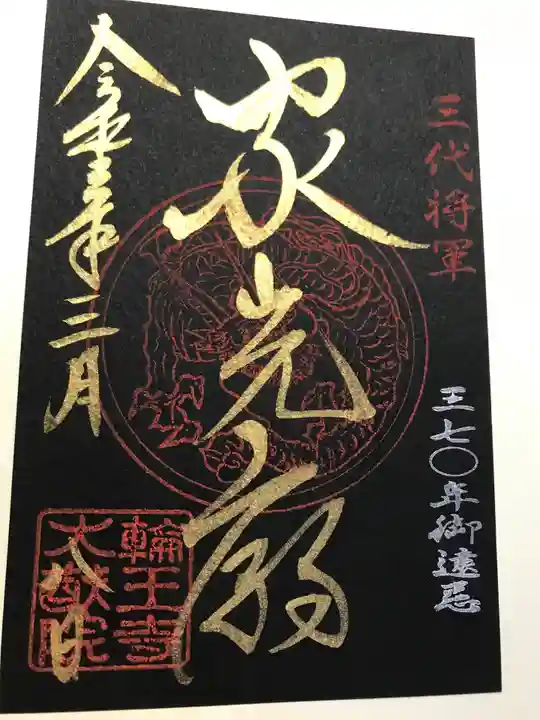 三代将軍
三七〇年御遠忌
家光廟
令和 年三月
八日
輪王寺
大猷院